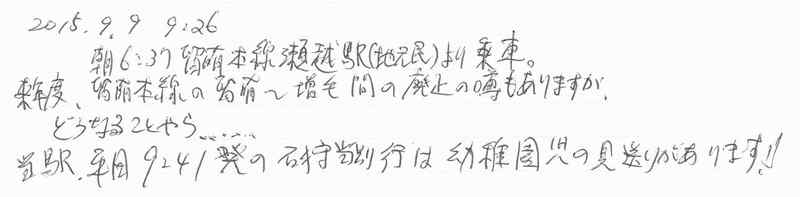 2015.9.9 9:26
朝6:37留萌本線瀬越駅(地元民)より乗車。
来年度、留萌本線の留萌〜増毛間の廃止の噂もありますが、
どうなることやら……
当駅、平日9:41発の石狩当別行は幼稚園児の見送りがあります!!